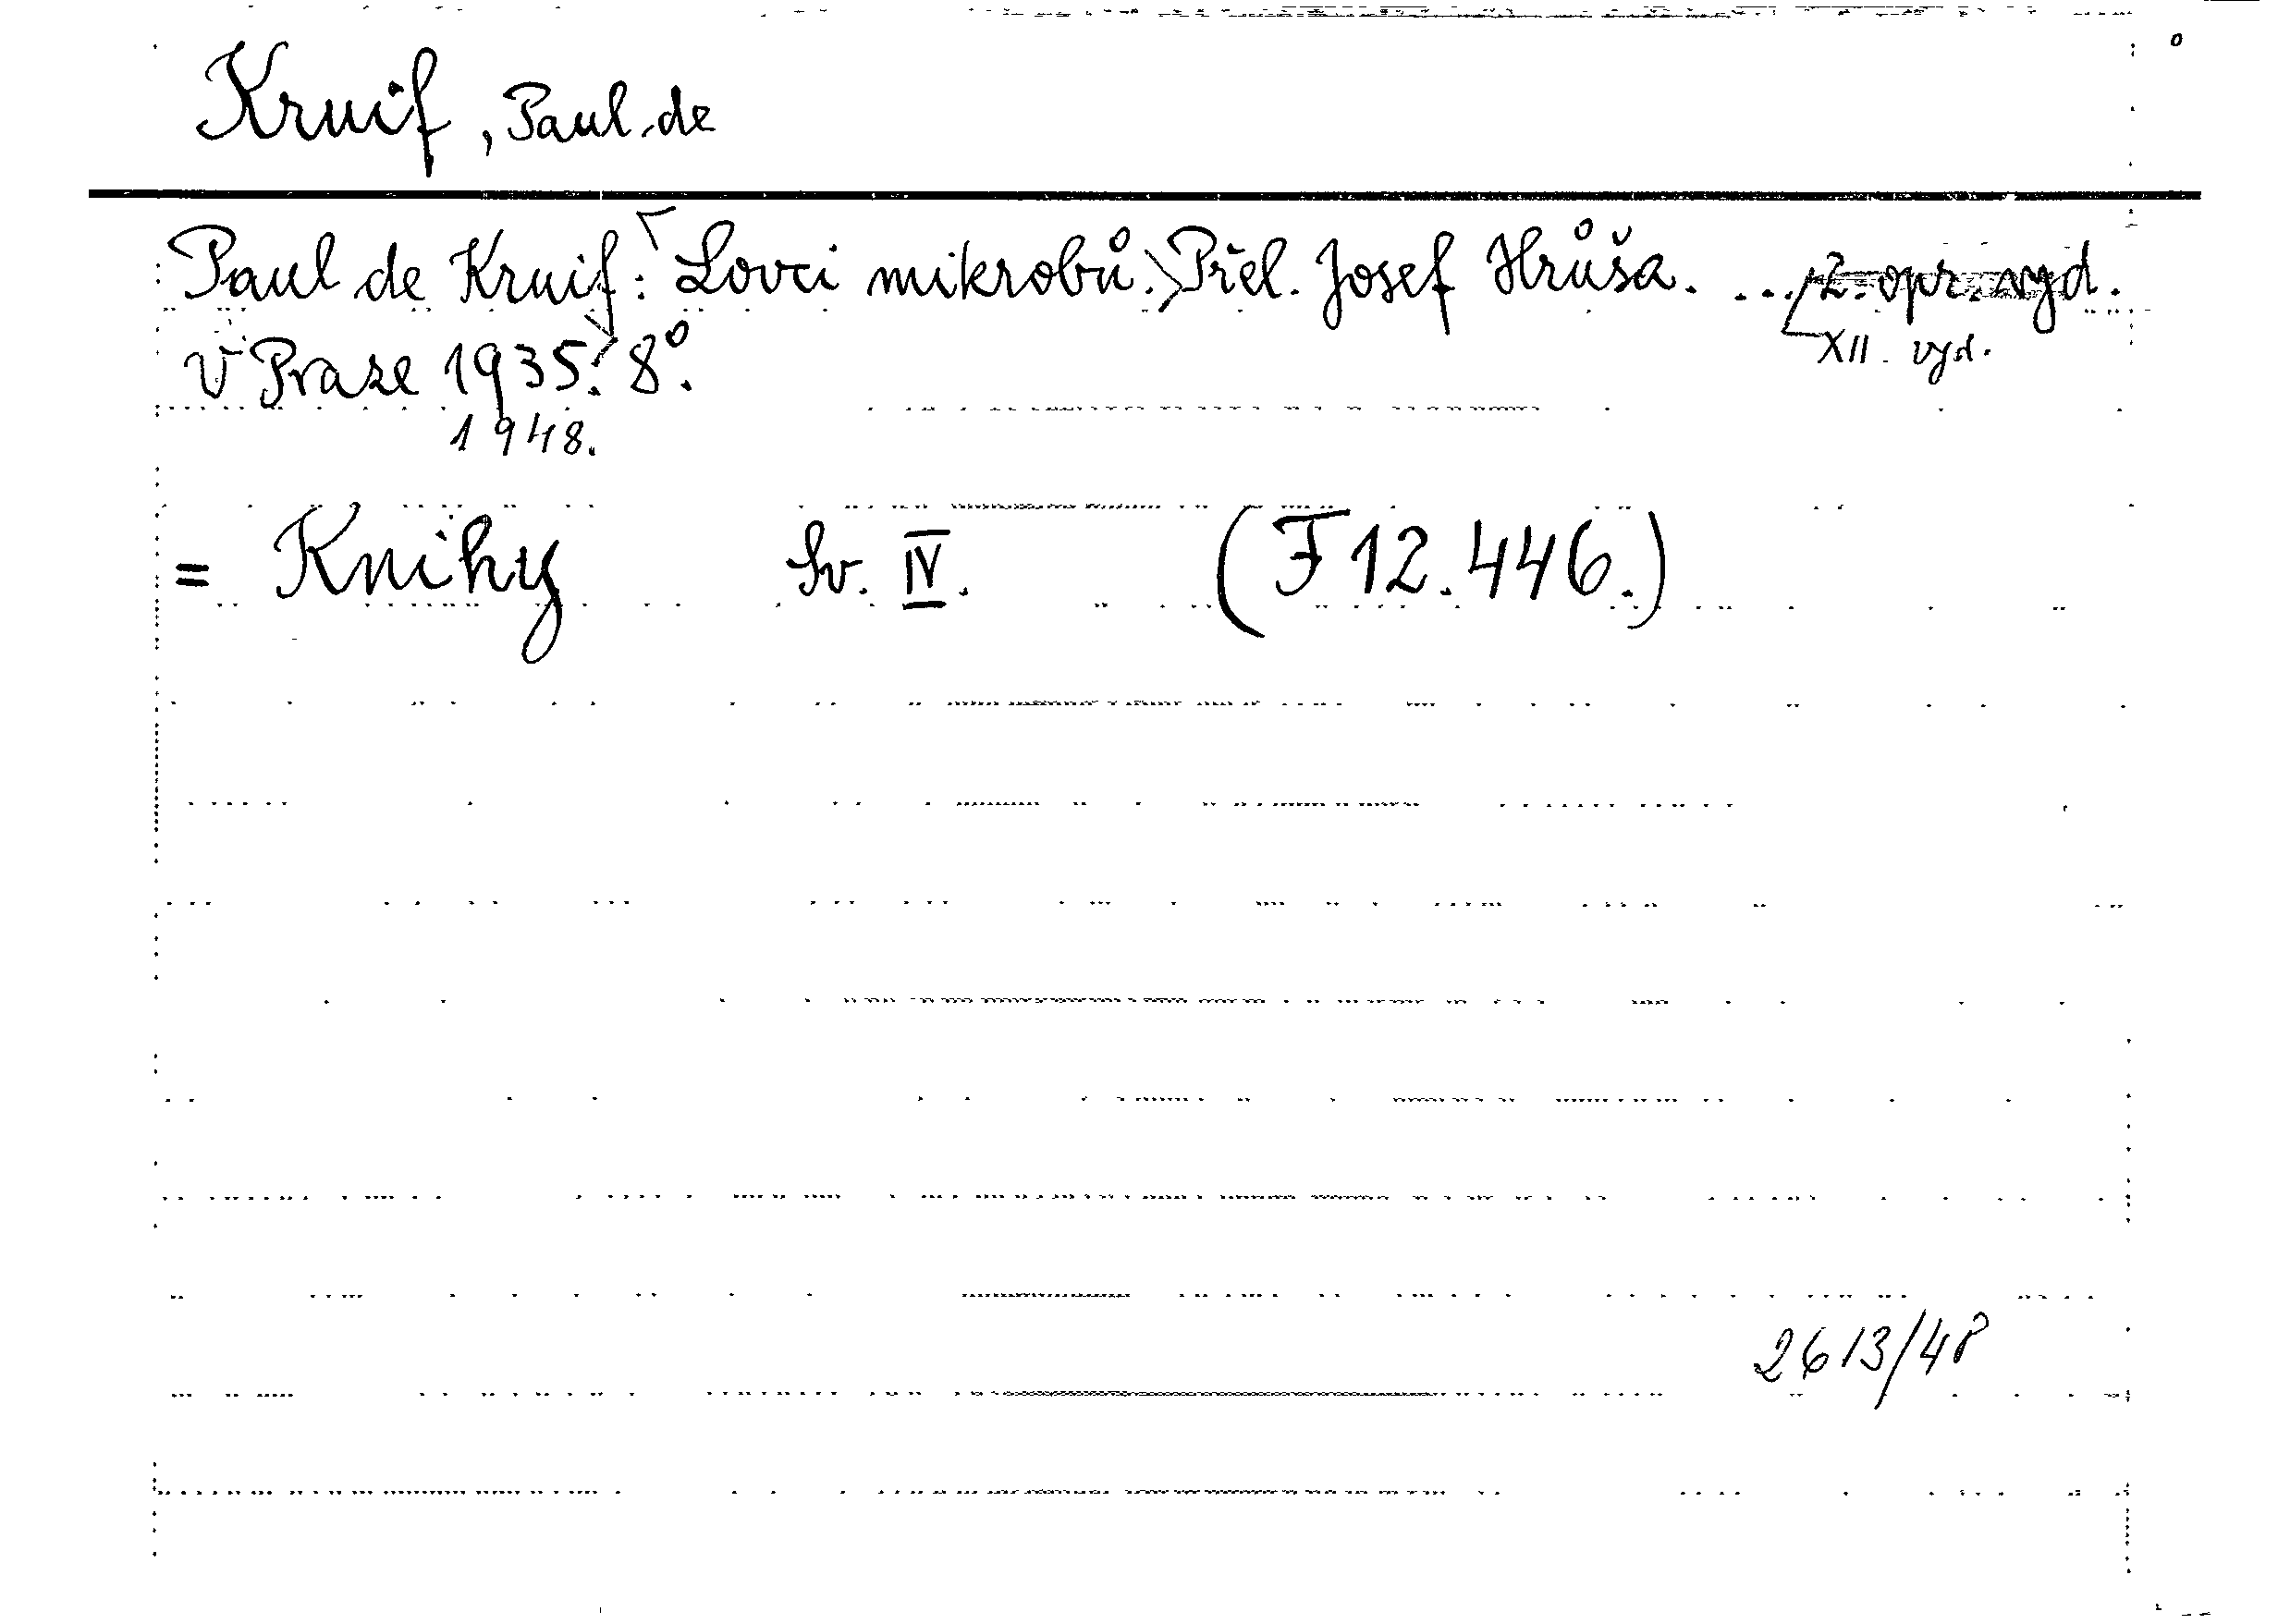 Kruif, Paul de
Paul de Kruif: Lovci mikrobů. Přel. Josef Hrůša. ... 2. opr. vyd.
XII. vyd.
V Praze 1935. 8°.
1948.
= Knihy Sv. IV. (F 12.446.)
2613/48